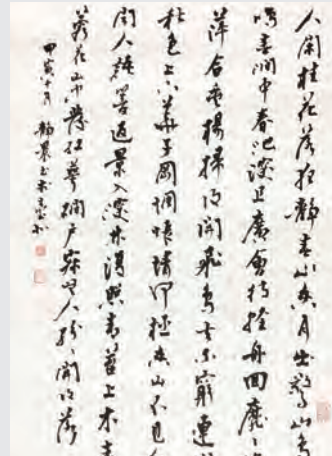 人閑桂花落夜靜春山空月出驚山鳥
鳴春澗中春池深且廣會待輕舟回靡
萍合垂楊掃復開飛鳥去不窮連
秋色上下華子岡惆悵情何極空山不見人
聞人語響返景入深林復照青苔上木末
蓉花山中發紅萼澗戶寂無人紛紛開且落
甲寅十月